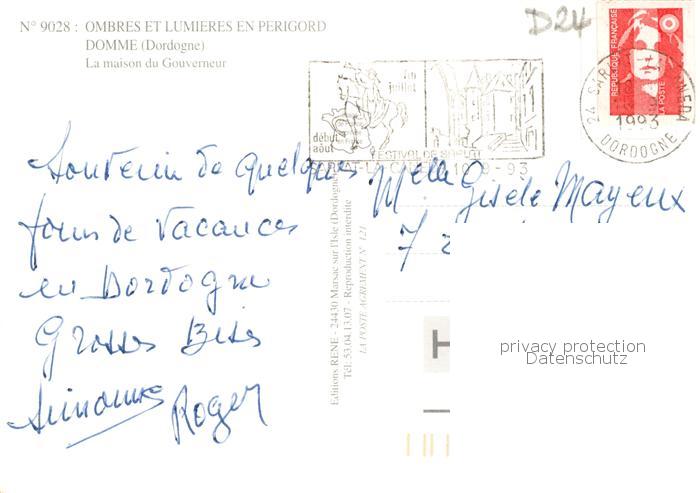 N° 9028 : OMBRES ET LUMIERES EN PERIGORD
DOMME (Dordogne)
La maison du Gouverneur
D24
fin
juillet
début
août
FESTIVAL DE SARLAT
9-93
REPUBLIQUE FRANÇAISE
LA POSTE
24 SARLAT
1993
DORDOGNE
Souvenir de quelques
jours de vacances
en Dordogne
Grosses Bises
Roger
Melle Gisele Mayeux
7
Editions RENE - 24430 Marsac sur l'Isle (Dordogne)
Tél: 53.04.13.07 - Reproduction interdite
LA POSTE AGREMENT N° 121
H
privacy protection
Datenschutz